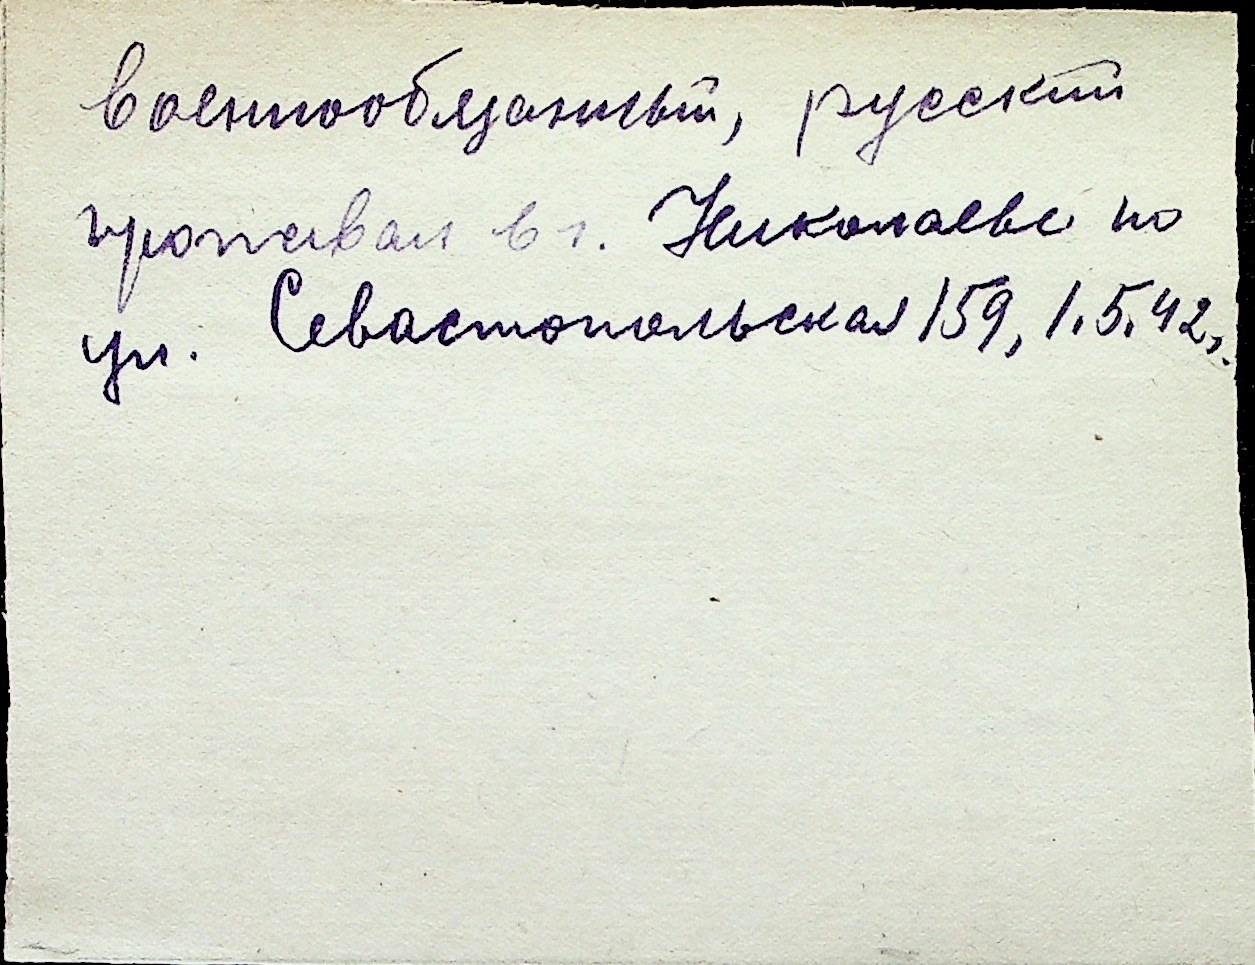 военнообязанный, русский
проживал в г. Николаеве по
ул. Севастопольская 159, 1.5.42,